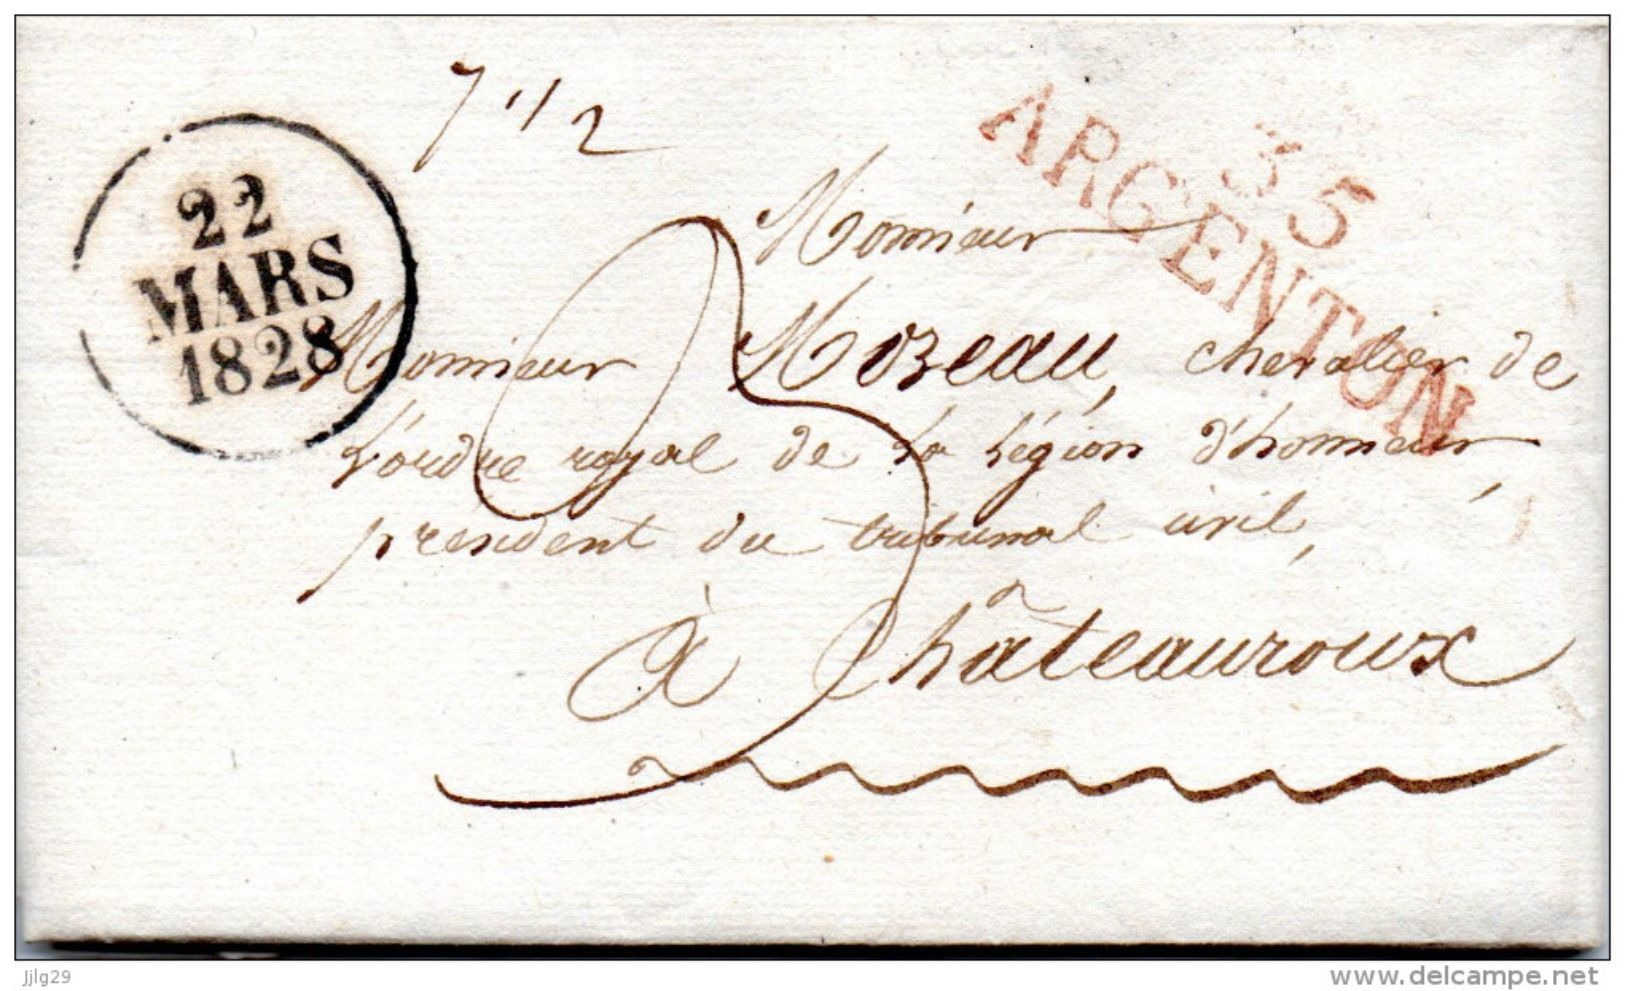 7 1/2
22
MARS
1828
35
ARGENTON
Monsieur
Monsieur Mozeau, chevalier de
l'ordre royal de la légion d'honneur
président du tribunal civil,
à Châteauroux
jjlg29
www.delcampe.net